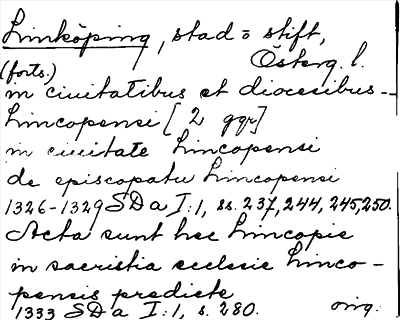 Linköping, stad o stift,
Österg. l.
(forts.)
in ciuitatibus et diocesibus -
Lincopensi [2 ggr]
in ciuitate Lincopensi
de episcopatu Lincopensi
1326-1329 SD a I:1, ss. 237, 244, 245, 250.
Acta sunt hec Lincopie
in sacristia ecclesie Linco-
pensis predicte
1333 SD a I:1, s. 280. orig.